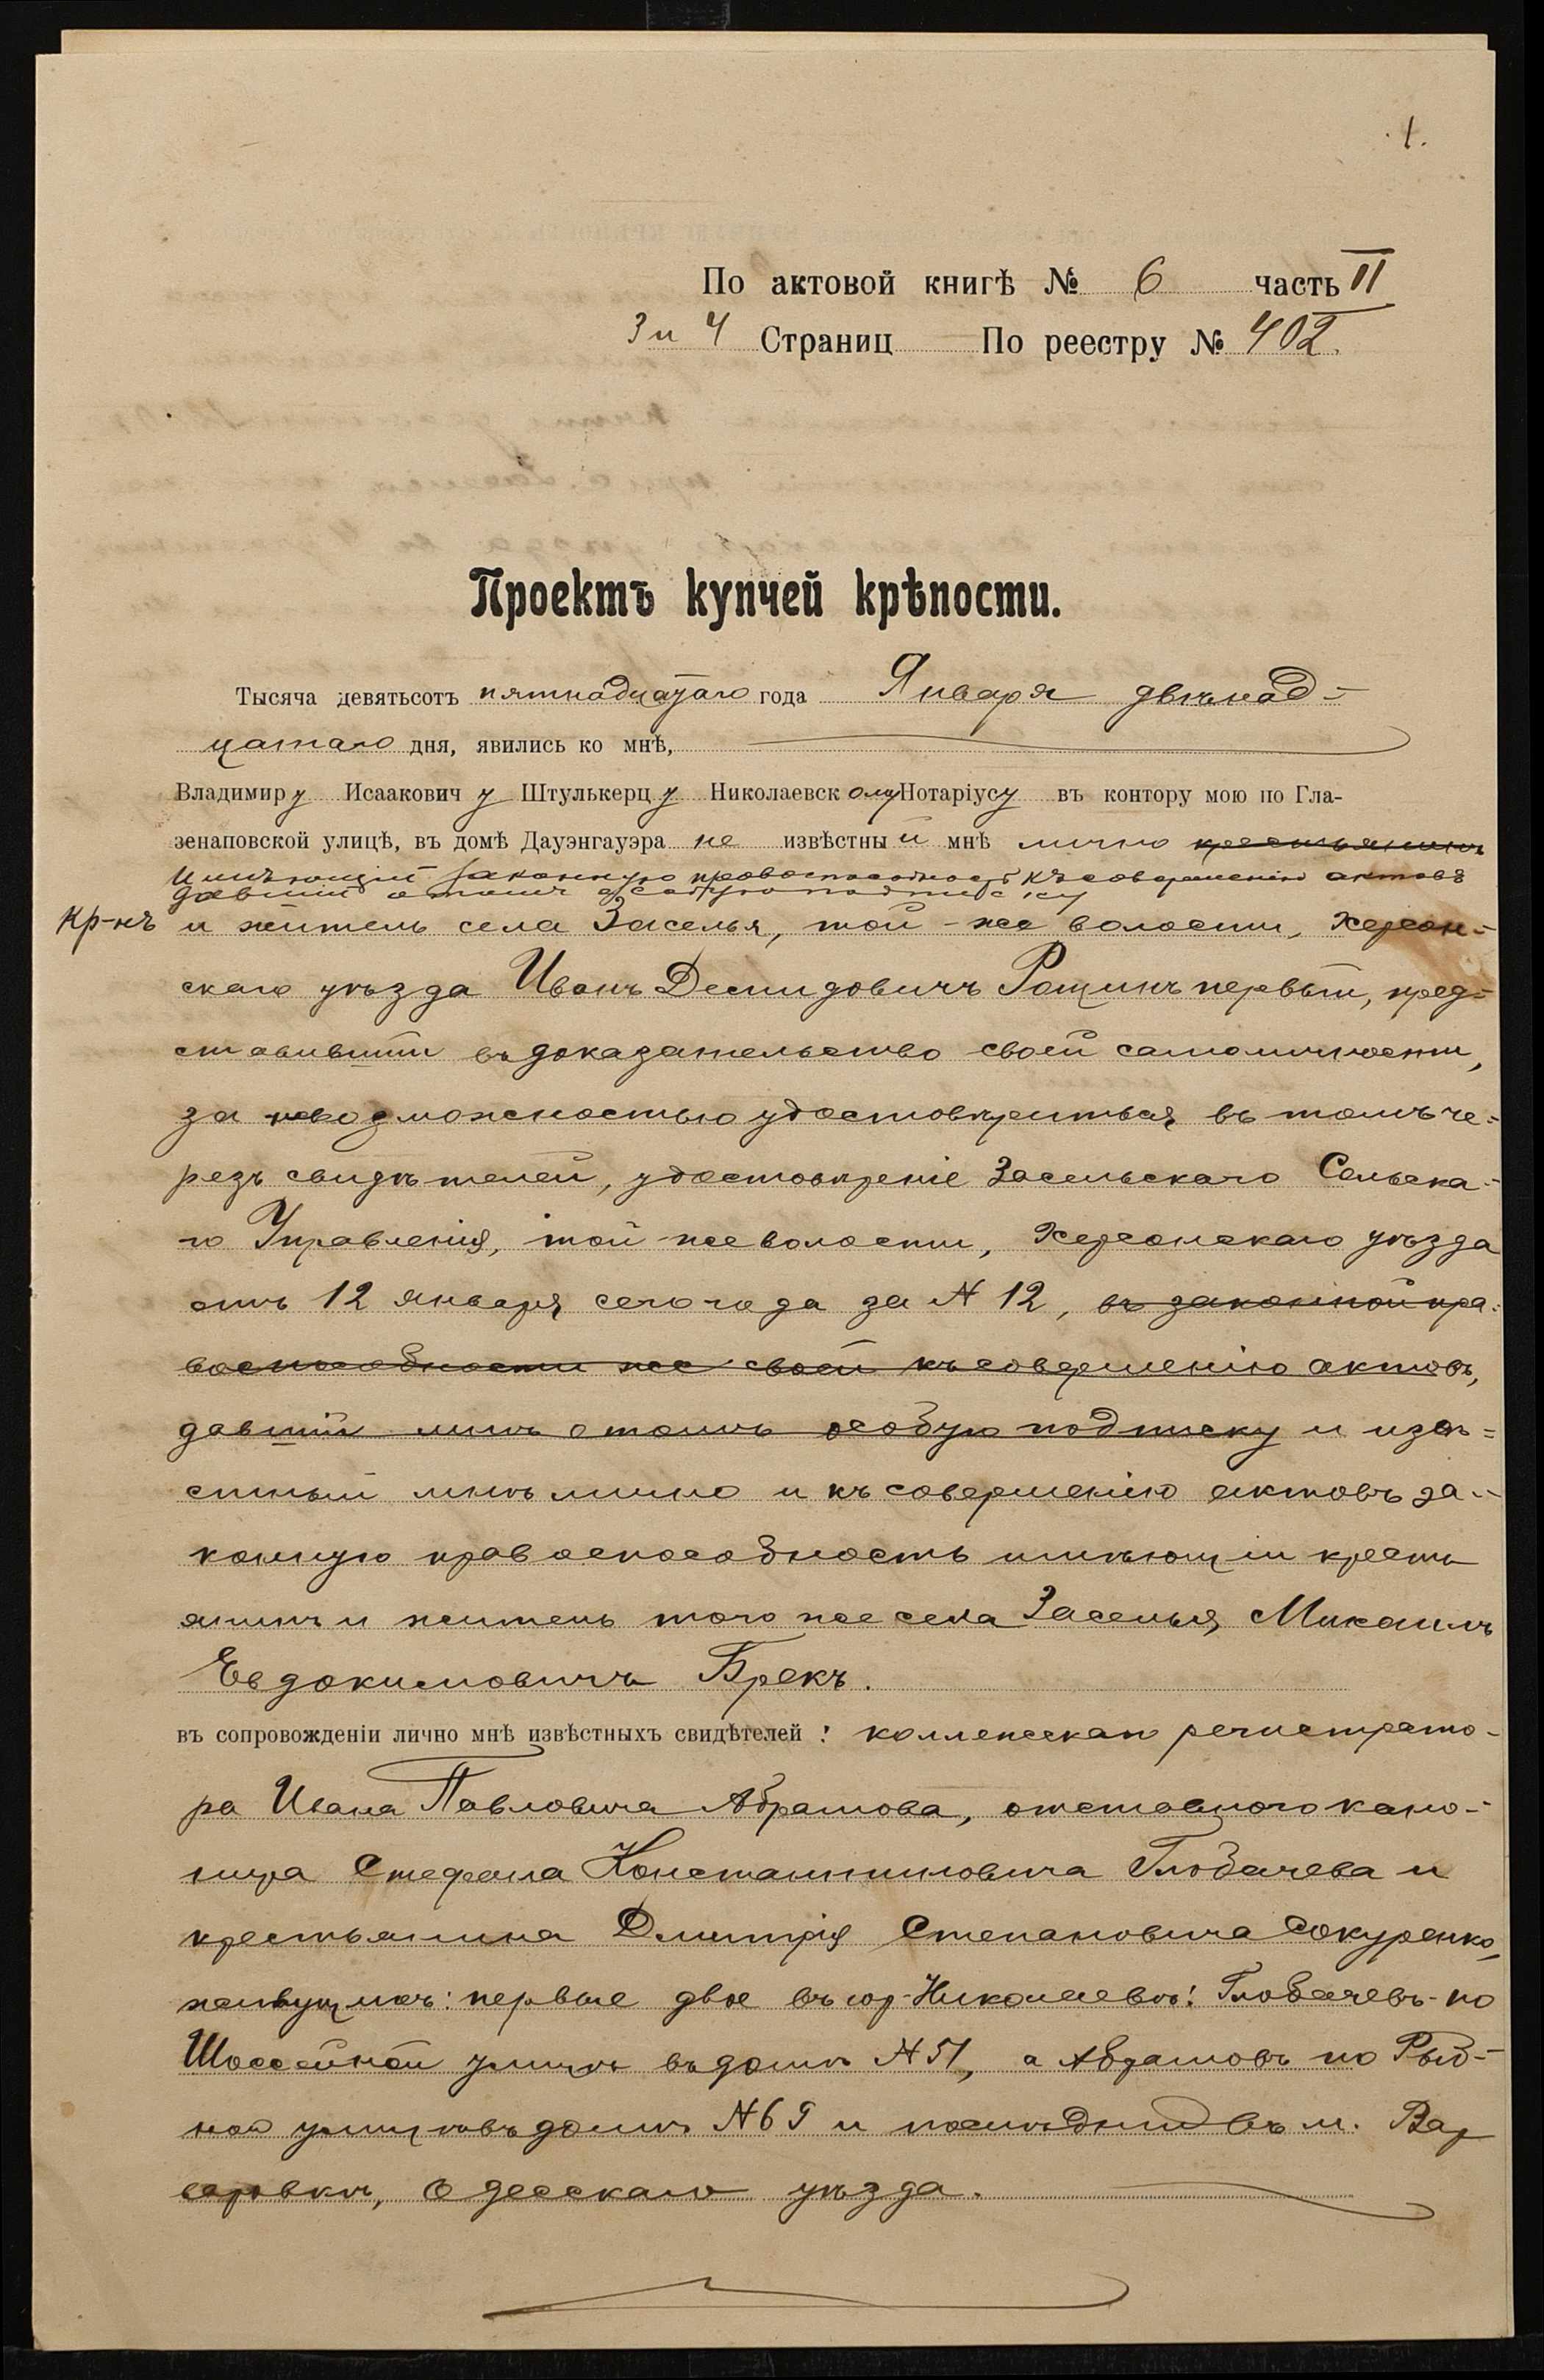 1.
По актовой книгѣ № 6 часть II
3 и 4 Страниц По реестру № 402.
Проектъ купчей крѣпости.
Тысяча девятьсотъ пятнадцатаго года Января двѣнад-
цатаго дня, явились ко мнѣ,
Владимиру Исааковичу Штулькерцу Николаевскому Нотаріусу въ контору мою по Гла-
зенаповской улицѣ, въ домѣ Дауэнгауэра не извѣстный мнѣ лично крестьянинъ
имѣющій законную правоспособность къ совершенію актовъ
давшій о томъ особую подписку
кр-нъ и житель села Заселья, той-же волости, Херсон-
скаго уѣзда Иванъ Демидовичъ Рощинъ первый, пред-
ставившій въ доказательство своей самоличности,
за невозможностью удостовѣриться въ томъ че-
резъ свидѣтелей, удостовѣреніе Засельскаго Сельска-
го Управленія, той же волости, Херсонскаго уѣзда
отъ 12 января сего года за № 12, въ законной пра-
воспособности же своей къ совершенію актовъ,
давшій мнѣ о томъ особую подписку и извѣ-
стный мнѣ лично и къ совершенію актовъ за-
конную правоспособность имѣющій кресть
янинъ и житель того же села Заселья, Михаилъ
Евдокимовичъ Брекъ.
въ сопровожденіи лично мнѣ извѣстныхъ свидѣтелей: коллежскаго регистрато-
ра Ивана Павловича Абрамова, отставного кано-
нира Стефана Константиновича Глобачева и
крестьянина Дмитрія Степановича Сокуренко,
живущихъ: первые двое въ гор. Николаевѣ: Глобачевъ-по
Шоссейной улицѣ въ домѣ № 51, а Абрамовъ по Рыб-
ной улицѣ въ домѣ № 69 и послѣдній въ м. Вар
варовкѣ, Одесскаго уѣзда.